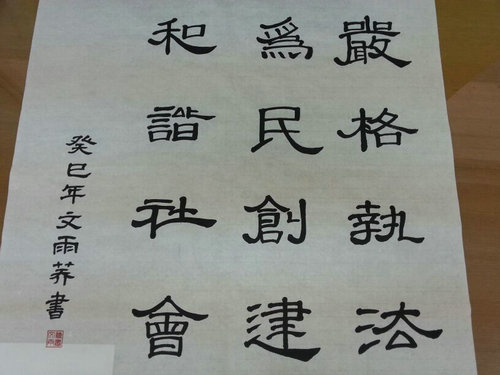 嚴格執法
爲民創建
和諧社會
癸巳年文雨莽書